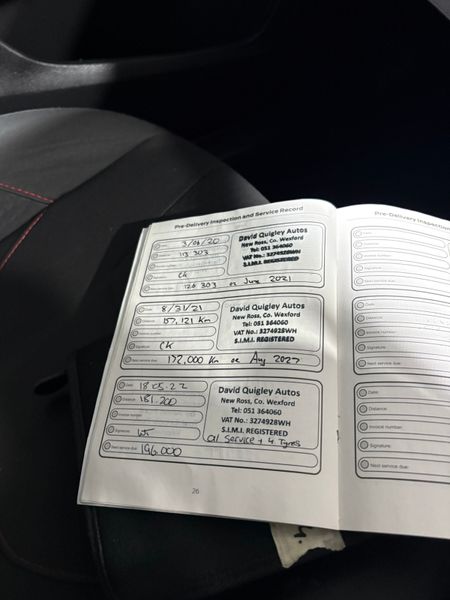 Pre-Delivery Inspection and Service Record
Date: 3/06/20
113 303
Ck
128 303 or June 2021
David Quigley Autos
New Ross, Co. Wexford
Tel: 051 364060
VAT No.: 3274928WH
S.I.M.I. REGISTERED
Date: 8/31/21
Distance: 157,121 Km
Signature: CK
Next service due: 172,000 Km or Aug 2022
David Quigley Autos
New Ross, Co. Wexford
Tel: 051 364060
VAT No.: 3274928WH
S.I.M.I. REGISTERED
Date: 18.05.22
Distance: 181.200
Invoice number:
Signature:
Next service due: 196.000
David Quigley Autos
New Ross, Co. Wexford
Tel: 051 364060
VAT No.: 3274928WH
S.I.M.I. REGISTERED
Oil Service + 4 Tyres
26
Pre-Delivery Inspection
Date:
Distance:
Invoice number:
Signature:
Next service due:
Date:
Distance:
Invoice number:
Signature:
Next service due: